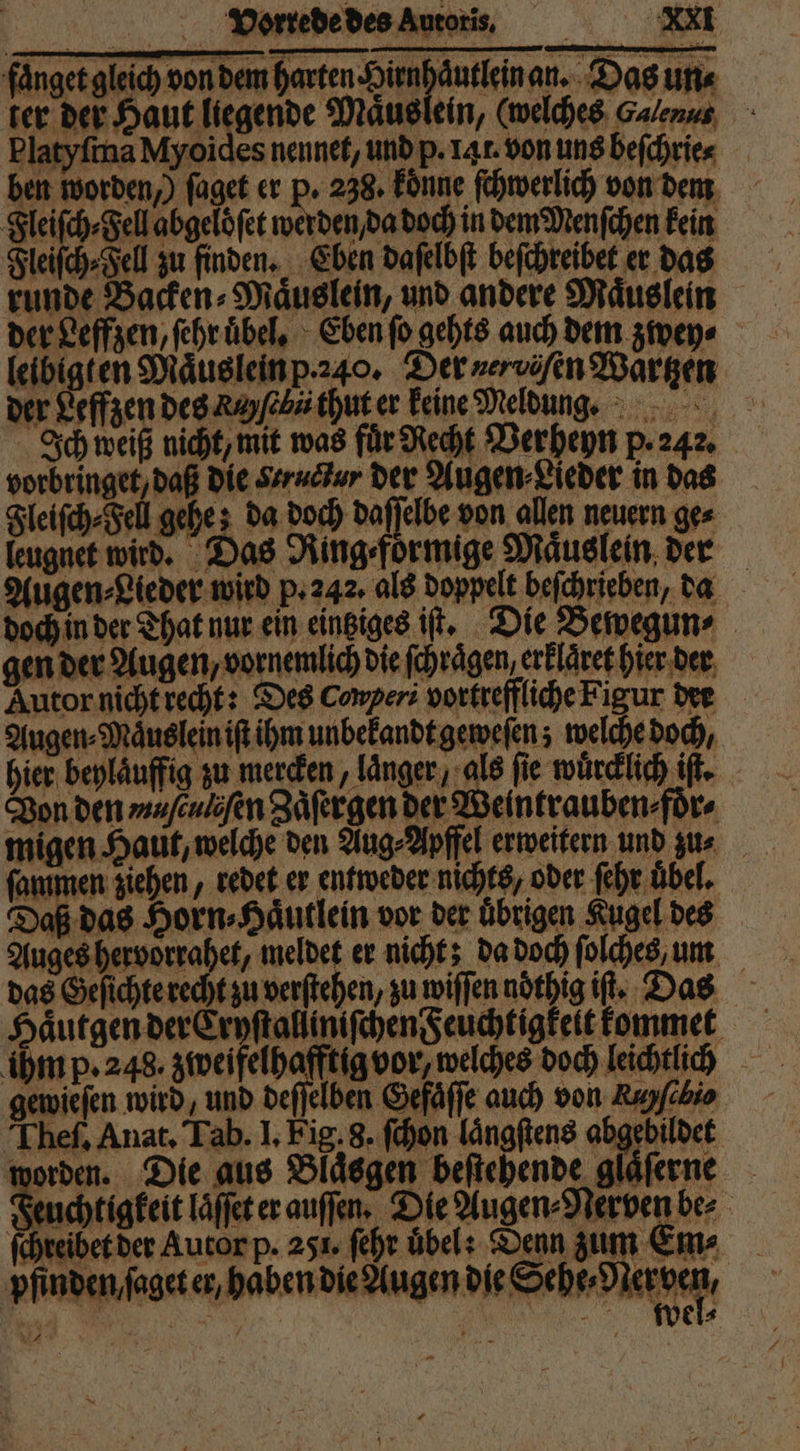 Vorrede des Autoris. XXI
fånget gleich von dem harten Hirnhåutlein an. Das un⸗
ter der Haut liegende Måuslein, (welches Galenus
Platyſma Myoides nennet, und p. 141. von uns beſchrie⸗
ben worden,) ſaget er p. 238. kõnne ſchwerlich von dem
Fleiſch⸗Fell abgelõſet werden, da doch in dem Menſchen kein
Fleiſch⸗Fell zu finden. Eben daſelbſt beſchreibet er das
runde Backen⸗Måuslein, und andere Måuslein
der Leffzen, ſehr ůbel. Eben ſo gehts auch dem zwey⸗
leibigten Måuslein p. 240. Der nervöſen Wartzen
der Leffzen des Ruyſchii thut er keine Meldung.
Ich weiß nicht, mit was fůr Recht Verheyn p. 242.
vorbringet, daß die Structur der Augen⸗Lieder in das
Fleiſch⸗Fell gehe; da doch daſſelbe von allen neuern ge⸗
leugnet wird. Das Ring⸗fõrmige Måuslein der
Augen⸗Lieder wird p. 242. als doppelt beſchrieben, da
doch in der That nur ein eintziges iſt. Die Bewegun⸗
gen der Augen, vornemlich die ſchrågen, erklåret hier der
Autor nicht recht: Des Cowperi vortreffliche Figur der
Augen⸗Måuslein iſt ihm unbekandt geweſen; welche doch,
hier beylåuffig zu mercken, långer, als ſie wůrcklich iſt.
Von den muſculöſen Zåſergen der Weintrauben⸗fõr⸗
migen Haut, welche den Aug⸗Apffel erweitern und zu⸗
ſammen ziehen, redet er entweder nichts, oder ſehr ůbel.
Daß das Horn⸗Håutlein vor der ůbrigen Kugel des
Auges hervorrahet, meldet er nicht; da doch ſolches, um
das Geſichte recht zu verſtehen, zu wiſſen nõthig iſt. Das
Håutgen der Cryſtalliniſchen Feuchtigkeit kommet
ihm p. 248. zweifelhafftig vor, welches doch leichtlich
gewieſen wird, und deſſelben Gefåſſe auch von Ruyſchio
Theſ. Anat. Tab. I. Fig. 8. ſchon långſtens abgebildet
worden. Die aus Blåsgen beſtehende glåſerne
Feuchtigkeit låſſet er auſſen. Die Augen⸗Nerven be⸗
ſchreibet der Autor p. 251. ſehr ůbel: Denn zum Em⸗
pfinden, ſaget er, haben die Augen die Sehe⸗Nerven,
wel⸗